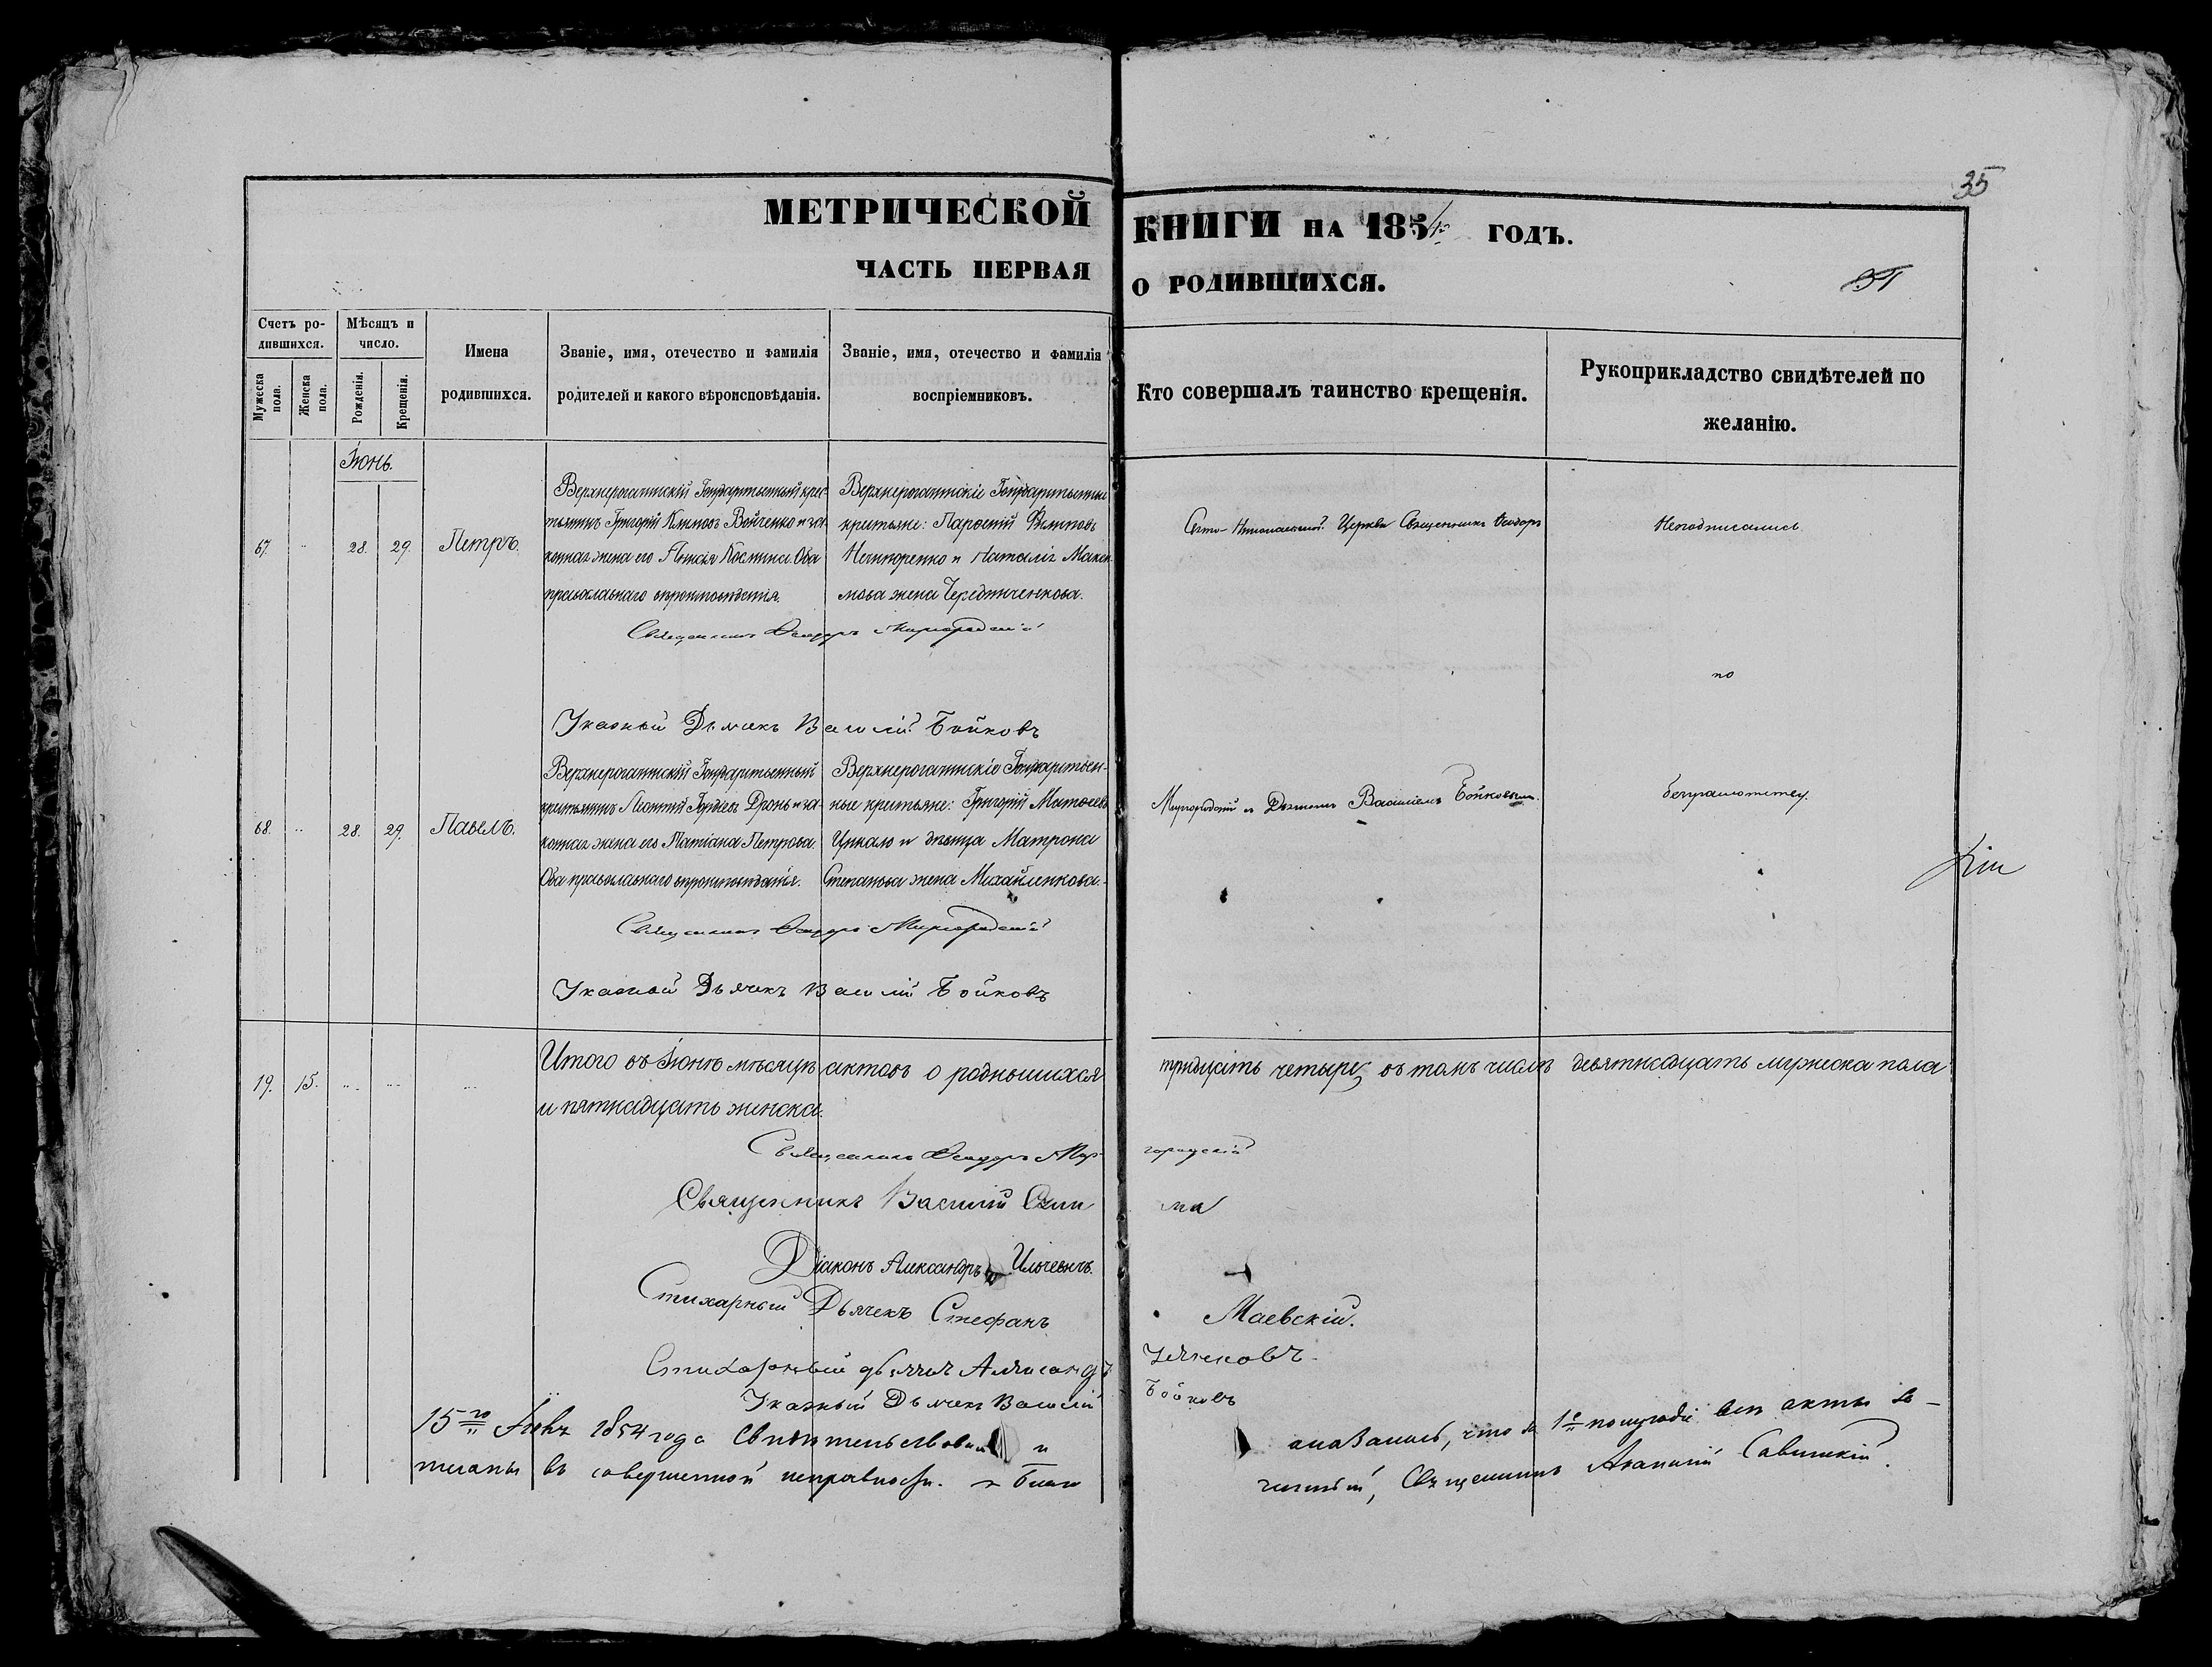 35
МЕТРИЧЕСКОЙ КНИГИ НА 1854 ГОДЪ.
ЧАСТЬ ПЕРВАЯ О РОДИВШИХСЯ.
Счетъ родившихся.
Мужеска пола.
Женска пола.
Мѣсяцъ и число.
Рожденія.
Крещенія.
Имена
родившихся.
Званіе, имя, отечество и фамилія
родителей и какого вѣроисповѣданія.
Званіе, имя, отечество и фамилія
воспріемниковъ.
Кто совершалъ таинство крещенія.
Рукоприкладство свидѣтелей по
желанію.
Іюнь.
67. 28. 29. Петръ.
Верхнерогачикскій Государственный крес-
тьянинъ Григорій Климовъ Войченко и за-
конная жена его Костина. Оба
православнаго вѣроисповѣданія.
Верхнерогачикскіе Государственные
крестьяне: Филиповъ
Нечипоренко и Наталія
мова жена Чередниченкова.
Священникъ Ѳеодоръ Миргородскій
Указный Дьячекъ Василій Бойковъ
68. 28. 29. Павелъ.
Верхнерогачикскій Государственный
крестьянинъ Леонтій Дронь и за-
конная жена его Татіана Петрова
Оба православнаго вѣроисповѣданія.
Верхнерогачикскіе Государствен-
ные крестьяне: Григорій Матвеевъ
Цикало и Матрона
Степанова жена Михайленкова.
Священникъ Ѳеодоръ Миргородскій
Указной Дьячекъ Василій Бойковъ
Свято-Николаевской Церкви Священникъ Ѳеодоръ
Миргородскій и Дьячекъ Василіемъ Бойковымъ.
Неподписались
по
безграмотству.
19. 15.
Итого въ Іюнѣ мѣсяцѣ актовъ о родившихся тридцать четыре, въ томъ числѣ девятнадцать мужеска пола
и пятнадцать женска.
Священникъ Ѳеодоръ Миргородскій
Священникъ Василій
Діаконъ Александръ Ильчевичъ.
Стихарный Дьячекъ Стефанъ Маевскій.
Стихарный дьячекъ Александръ
Указный Дьячекъ Василій Бойковъ
15го 1854 года Свидѣтельствовалъ и оказалось, что за 1е полугодіе всѣ акты за-
писаны въ совершенной исправности. Благочинный, Священникъ Савицкій.